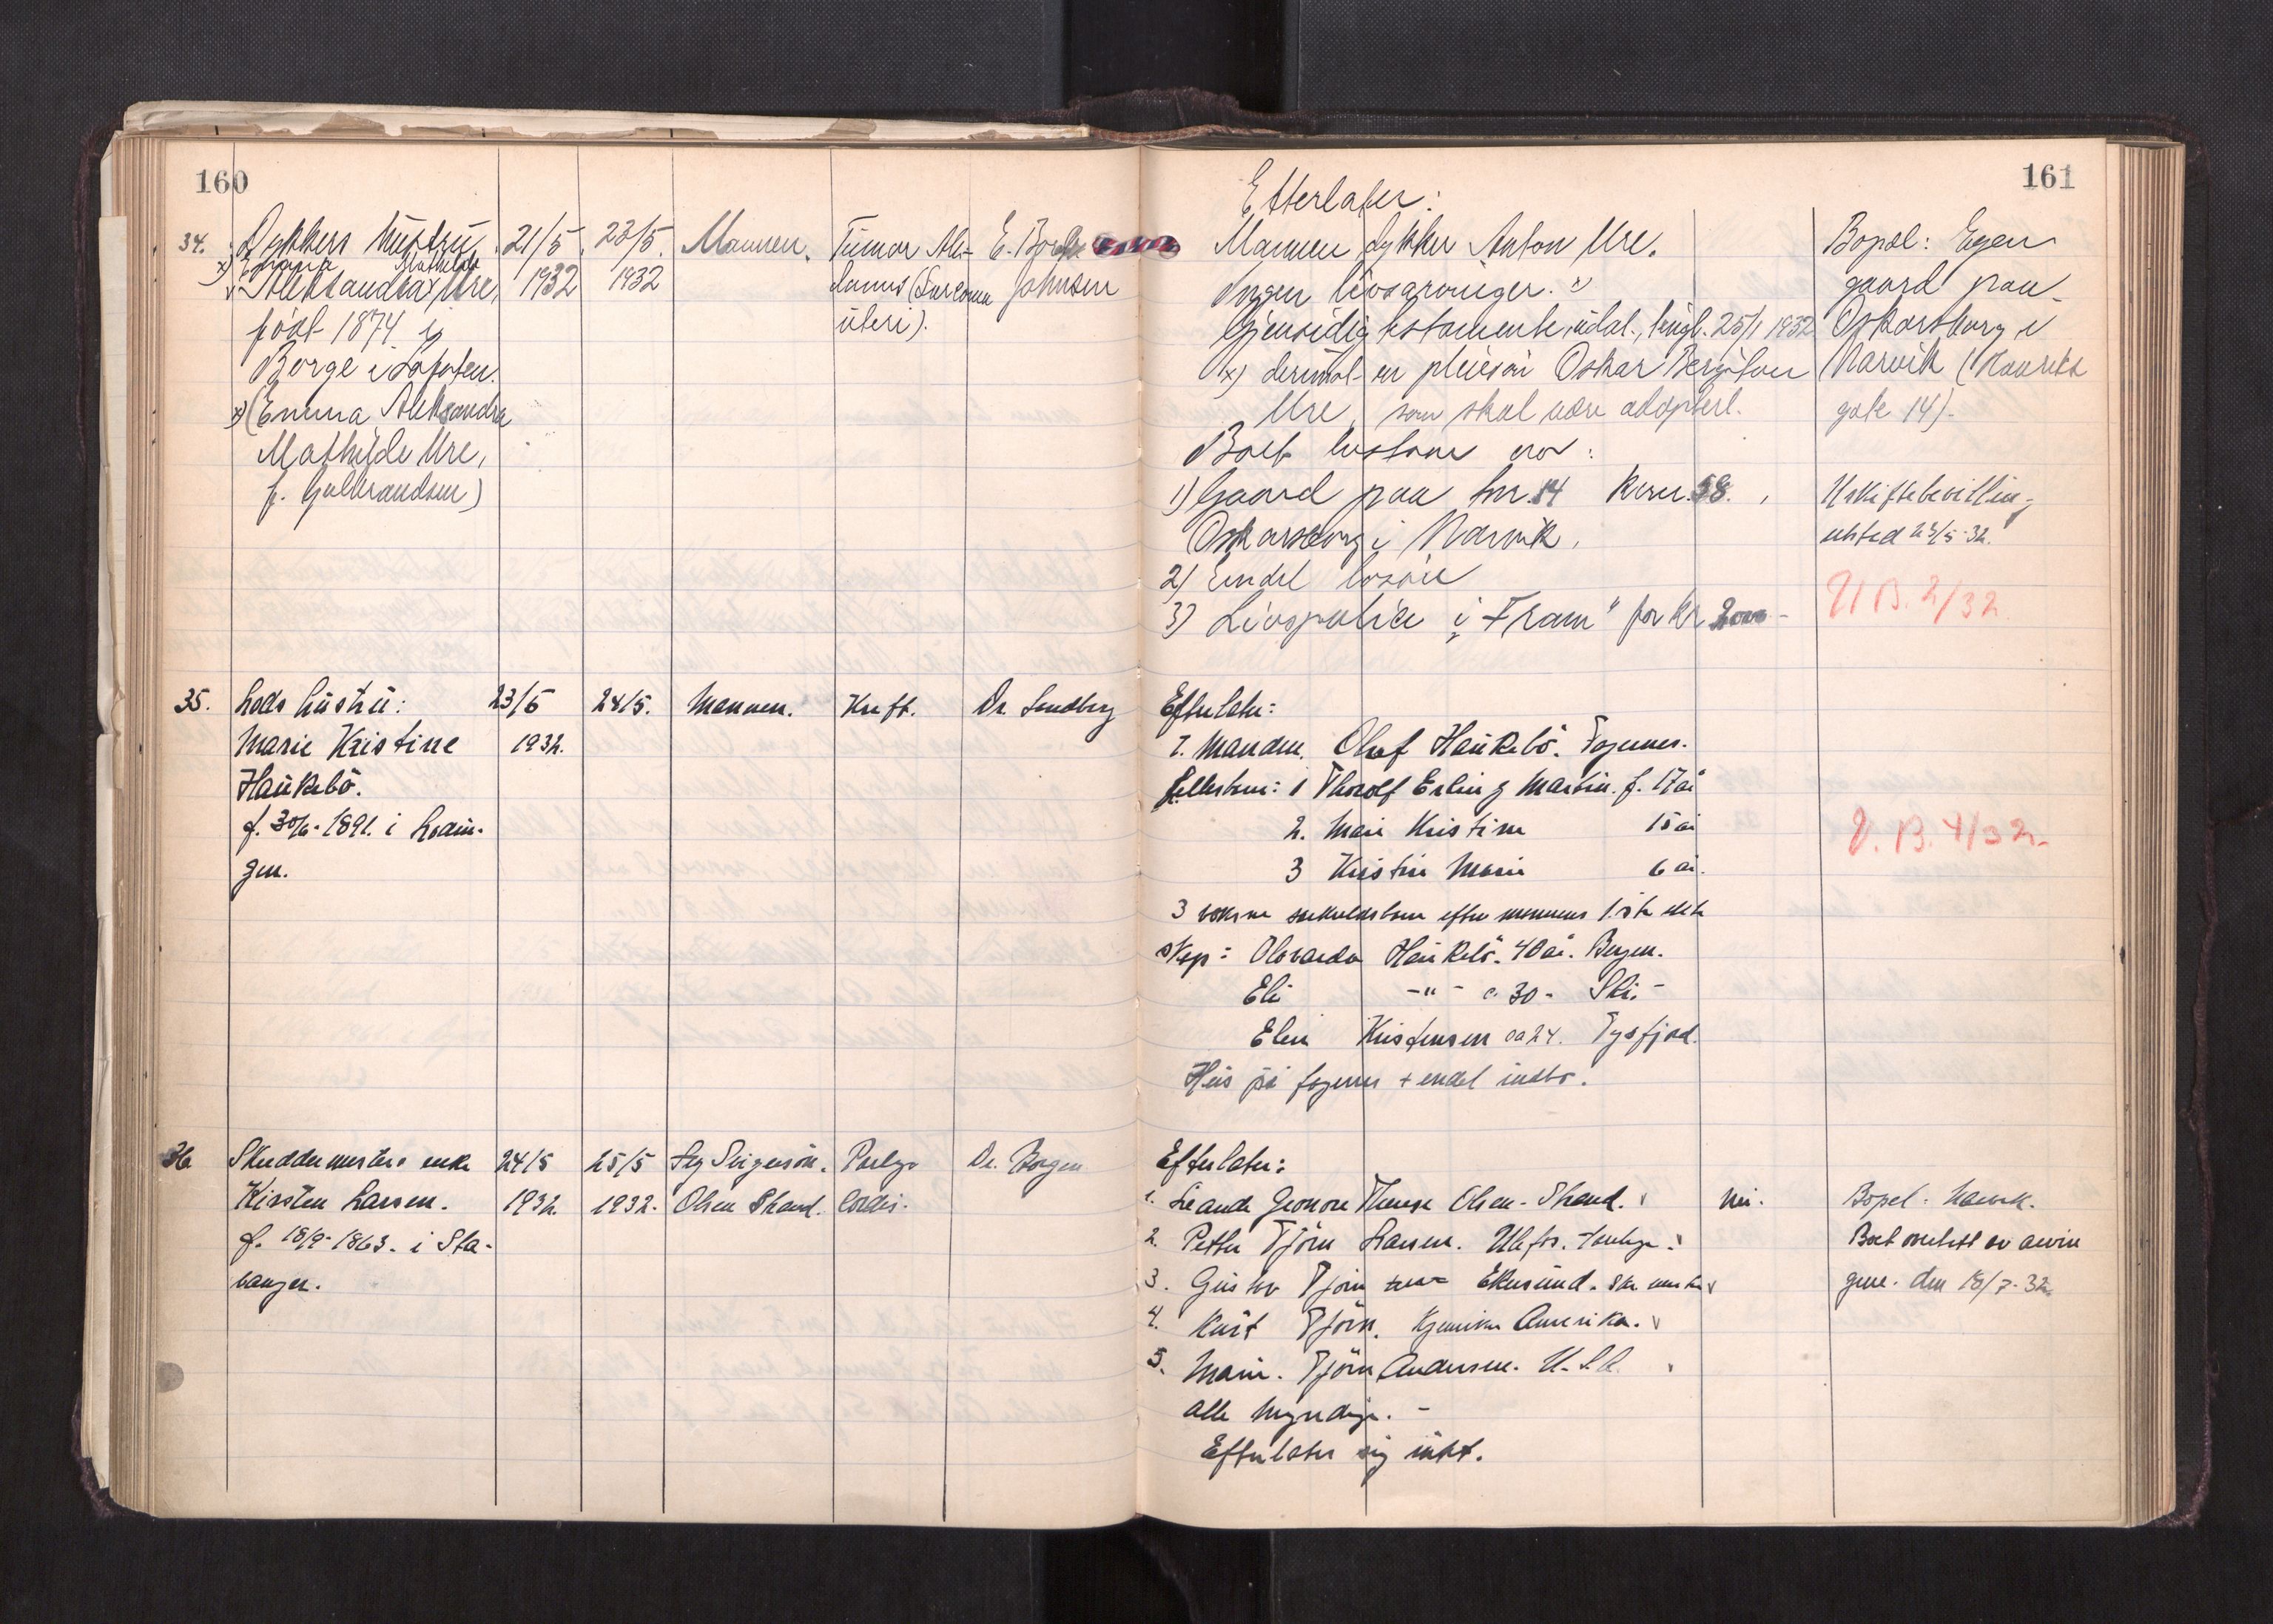 160
34. Dykkers hustru
x) Emma Mathilde
Aleksandra Ure,
født 1874 i
Borge i Lofoten.
x) (Emma Aleksandra
Mathilde Ure,
f. Gulbrandsen)
21/5
1932
23/5.
1932
Mannen.
Tumor Ab-
dominis (Sarcoma
uteri).
E. Borch
Johnsen
35. Lods hustru:
Marie Kristine
Haukebö.
f. 30/6-1891. i Lödin-
gen.
23/5
1932.
24/5.
Mannen.
Kreft.
Dr. Sendberg
36 Skreddermesters enke
Kirsten Larsen.
f. 18/9-1863. i Sta-
vanger.
24/5
1932.
25/5
1932.
Svigersön.
Olsen Strand.
Paralys.
Cordis.
Dr. Borgen
161
Efterlater:
Mannen dykker Anton Ure.
Ingen livsarvinger. x
Gjensidig testamente, udat., tingl. 25/1 1932
x) derimot en pleiesön Oskar Bergithon
Ure, som skal være adoptert.
Boets bestaar av:
1) Gaard paa tnr. 14 Kvar. 58.
Oskarsborg i Narvik.
2) Endel lösöre
3) Livspolice i "Fram" for Kr 2000-
Bopæl: Egen
gaard paa
Oskarsborg i
Narvik (Haareks
gate 14).
Uskiftebevilling
utsted 23/5-32.
U B. 2/32
Efterlater:
1. Manden. Olaf Haukebö. Fagernes.
Fellesbarn: 1 Thorolf Erling Martin. f. 17 år
2. Marie Kristine 15 år
3 Kristine Marie 6 år.
3 voksne særkullsbarn efter mannens 1ste ekte
skap: Olvarda Haukebö. 40 år. Bergen.
Eli -"- c. 30- Ski.-
Elen Kristensen ca 24. Tysfjord.
Hus på Fagernes + endel indbo.
U. B. 4/32.
Efterlater:
1. Leonore Therese Olsen-Strand.
2. Petter Tjörn Larsen. Ulefos.
3. Gustav Tjörn Ekersund.
4. Knut Tjörn. Kjemiker Amerika.
5. Marie. Tjörn Andersen. U.S.A.
Alle myndige. -
Efterlater sig intet.
Nei.
Bopel. Narvik.
Boet overtatt av arvin
gene. den 18/7-32.